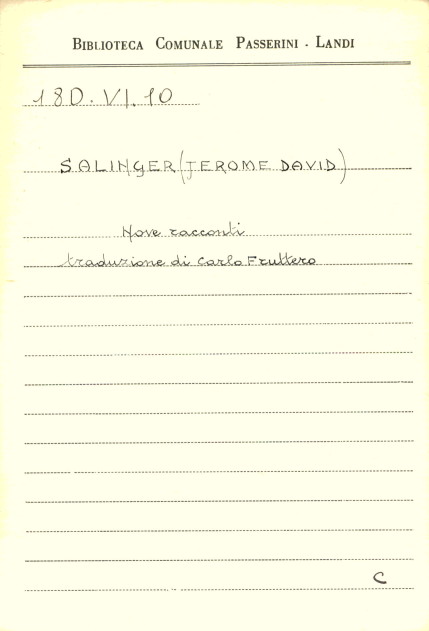 BIBLIOTECA COMUNALE PASSERINI - LANDI
18D.VI.10
SALINGER (JEROME DAVID)
Nove racconti
traduzione di Carlo Fruttero
C